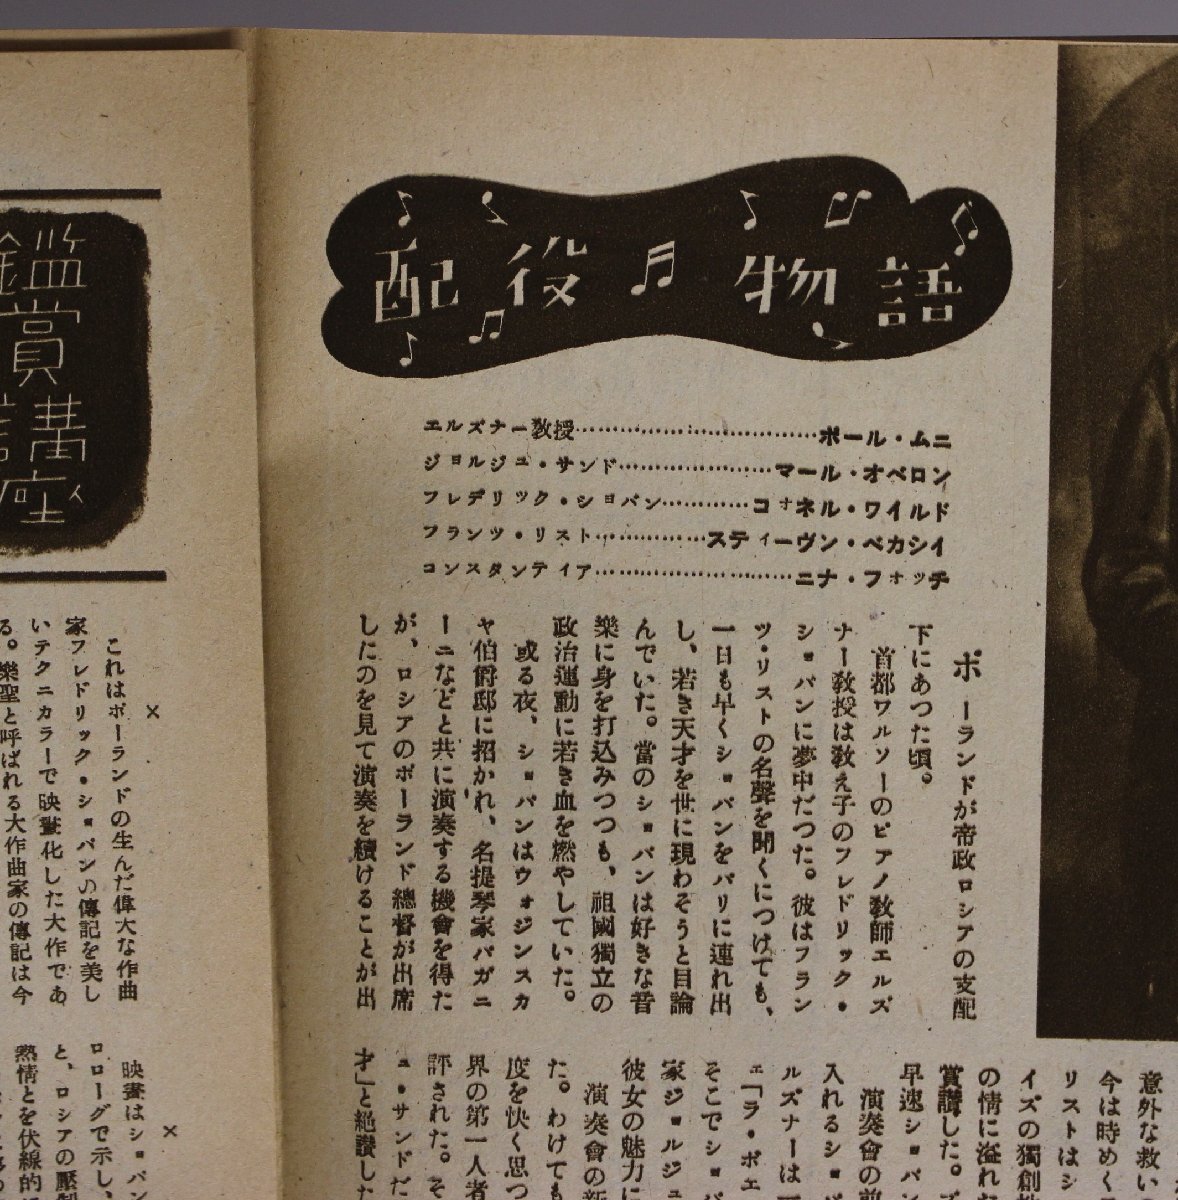 配役 物語
エルズナー教授……………………………ポール・ムニ
ジョルジュ・サンド…………………マール・オベロン
フレデリック・ショパン…………コォネル・ワイルド
フランツ・リスト……………スティーヴン・ベカシイ
コンスタンテイア………………………ニナ・フォッチ
ポーランドが帝政ロシアの支配
下にあつた頃。
首都ワルソーのピアノ教師エルズ
ナー教授は教え子のフレドリック・
ショパンに夢中だつた。彼はフラン
ツ・リストの名聲を聞くにつけても、
一日も早くショパンをパリに連れ出
し、若き天才を世に現わそうと目論
んでいた。當のショパンは好きな音
樂に身を打込みつつも、祖國獨立の
政治運動に若き血を燃やしていた。
或る夜、ショパンはウォジンスカ
ヤ伯爵邸に招かれ、名提琴家パガニ
ーニなどと共に演奏する機會を得た
が、ロシアのポーランド總督が出席
したのを見て演奏を續けることが出
意外な救い
今は時めく
リストはシ
イズの獨創
の情に溢れ
賞讃した。
早速ショパ
演奏會の前
入れるショ
ルズナーは
ェ「ラ・ポエ
そこでショ
家ジョルジュ
彼女の魅力に
演奏會の新
た。わけても
度を快く思つ
界の第一人者
評された。そ
ュ・サンドだ
才」と絶讃した
鑑賞講座
×
これはポーランドの生んだ偉大な作曲
家フレドリック・ショパンの傳記を美し
いテクニカラーで映畫化した大作であ
る。樂聖と呼ばれる大作曲家の傳記は今
×
映畫はショパン
ロローグで示し、
と、ロシアの壓
熱情とを伏線的